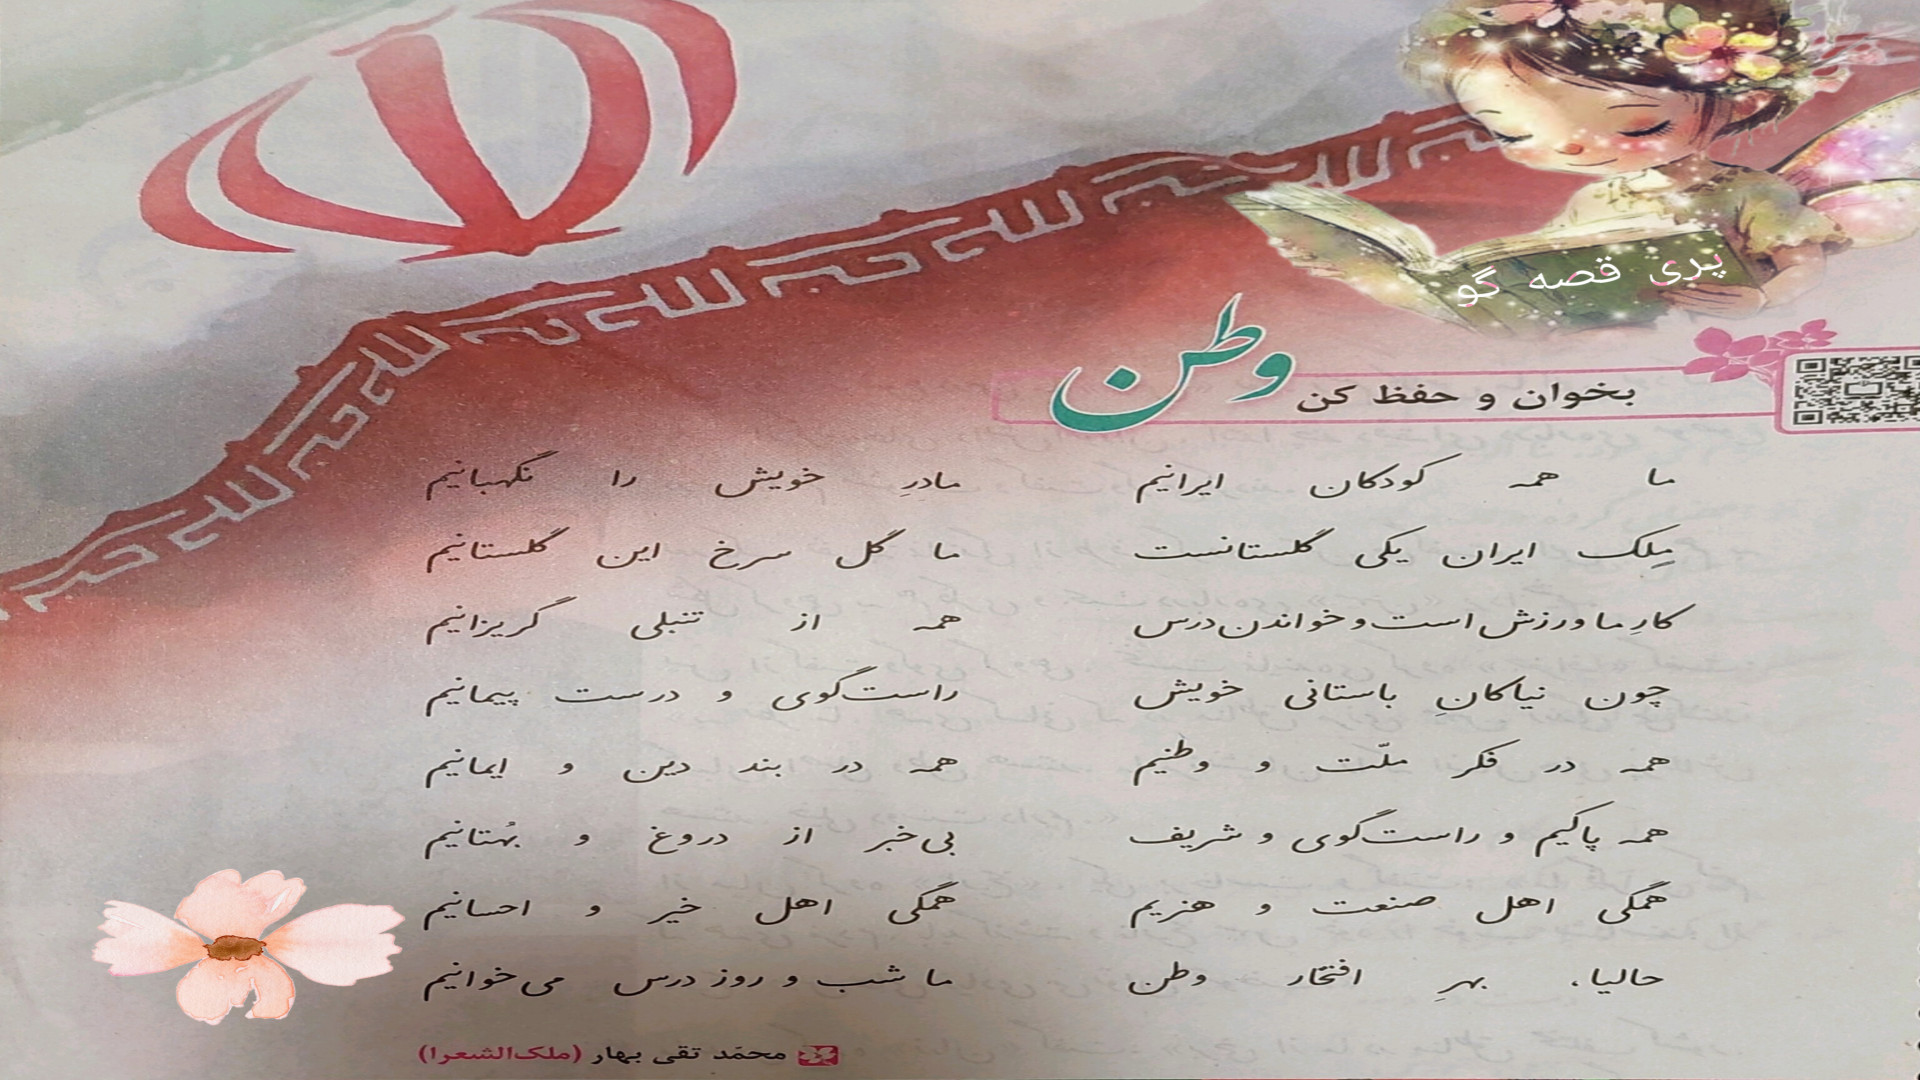 پری قصه گو
بخوان و حفظ کن وطن
ما همه کودکان ایرانیم مادرِ خویش را نگهبانیم
مِلک ایران یکی گلستانست ما گل سرخ این گلستانیم
کارِ ما ورزش است و خواندن درس همه از تنبلی گریزانیم
چون نیاکانِ باستانی خویش راست‌گوی و درست پیمانیم
همه در فکر ملّت و وطنیم همه در بند دین و ایمانیم
همه پاکیم و راست‌گوی و شریف بی‌خبر از دروغ و بُهتانیم
همگی اهل صنعت و هنریم همگی اهل خیر و احسانیم
حالیا، بهرِ افتخار وطن ما شب و روز درس می‌خوانیم
محمّد تقی بهار (ملک‌الشعرا)